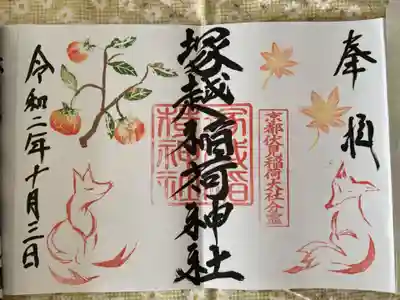 奉拝
京都伏見稲荷大社分霊
塚越稲荷神社
塚越稲荷神社
令和二年十月三日